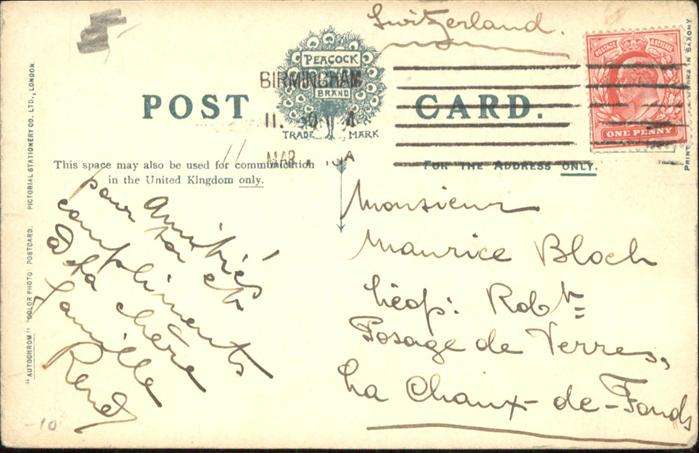 Switzerland.
PEACOCK
BRAND
TRADE MARK
POST CARD.
BIRMINGHAM
MAR
POSTAGE REVENUE
ONE PENNY
This space may also be used for communication
in the United Kingdom only.
FOR THE ADDRESS ONLY.
Amitiés
pour toi et
compliments
à ta chère
famille
René
Monsieur
Maurice Bloch
Léop: Robt
Posage de Verres,
La Chaux-de-Fonds
"AUTOCHROM" "COLOR PHOTO" POSTCARD. PICTORIAL STATIONERY CO. LTD., LONDON
PRINTED IN SAXONY
-10